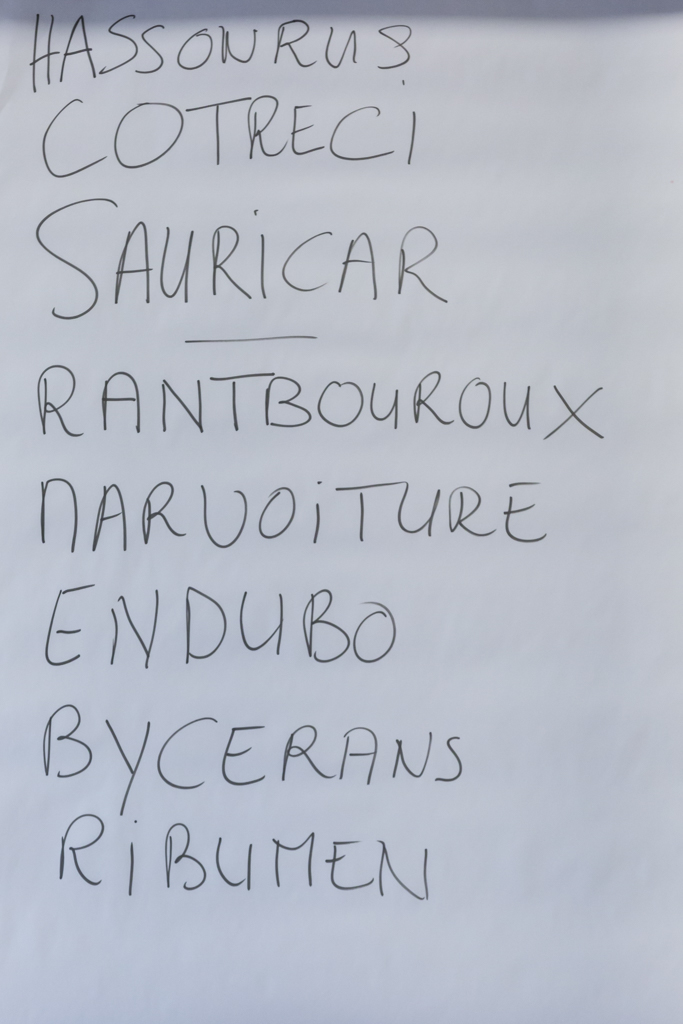 HASSONRUS
COTRECI
SAURICAR
RANTBOUROUX
NARVOITURE
ENDUBO
BYCERANS
RIBUMEN